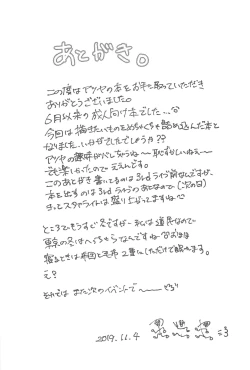 あとがき。
この度はアツヤの本をお手に取っていただき
ありがとうございました。
6月以来の成人向け本でした...
今回は描きたいものをめちゃくちゃ詰め込んだ本と
なりました。いかがでしたでしょうか??
アツヤの趣味がバレちゃうね〜恥ずかしいねえ〜
でも楽しかったので ええんです。
このあとがき書いてるのは3rdライブ前なんですが、
本を出すのは3rdライブのあとなので(次の日)
きっとスタァライトは盛り上がってますね
ところでもうすぐ冬ですが、私は道民なので
東京の冬はへっちゃらなんですね
寝るときは布団と毛布2重にしただけで眠れます。
え?
それでは また次のイベントで〜
2019.11.4